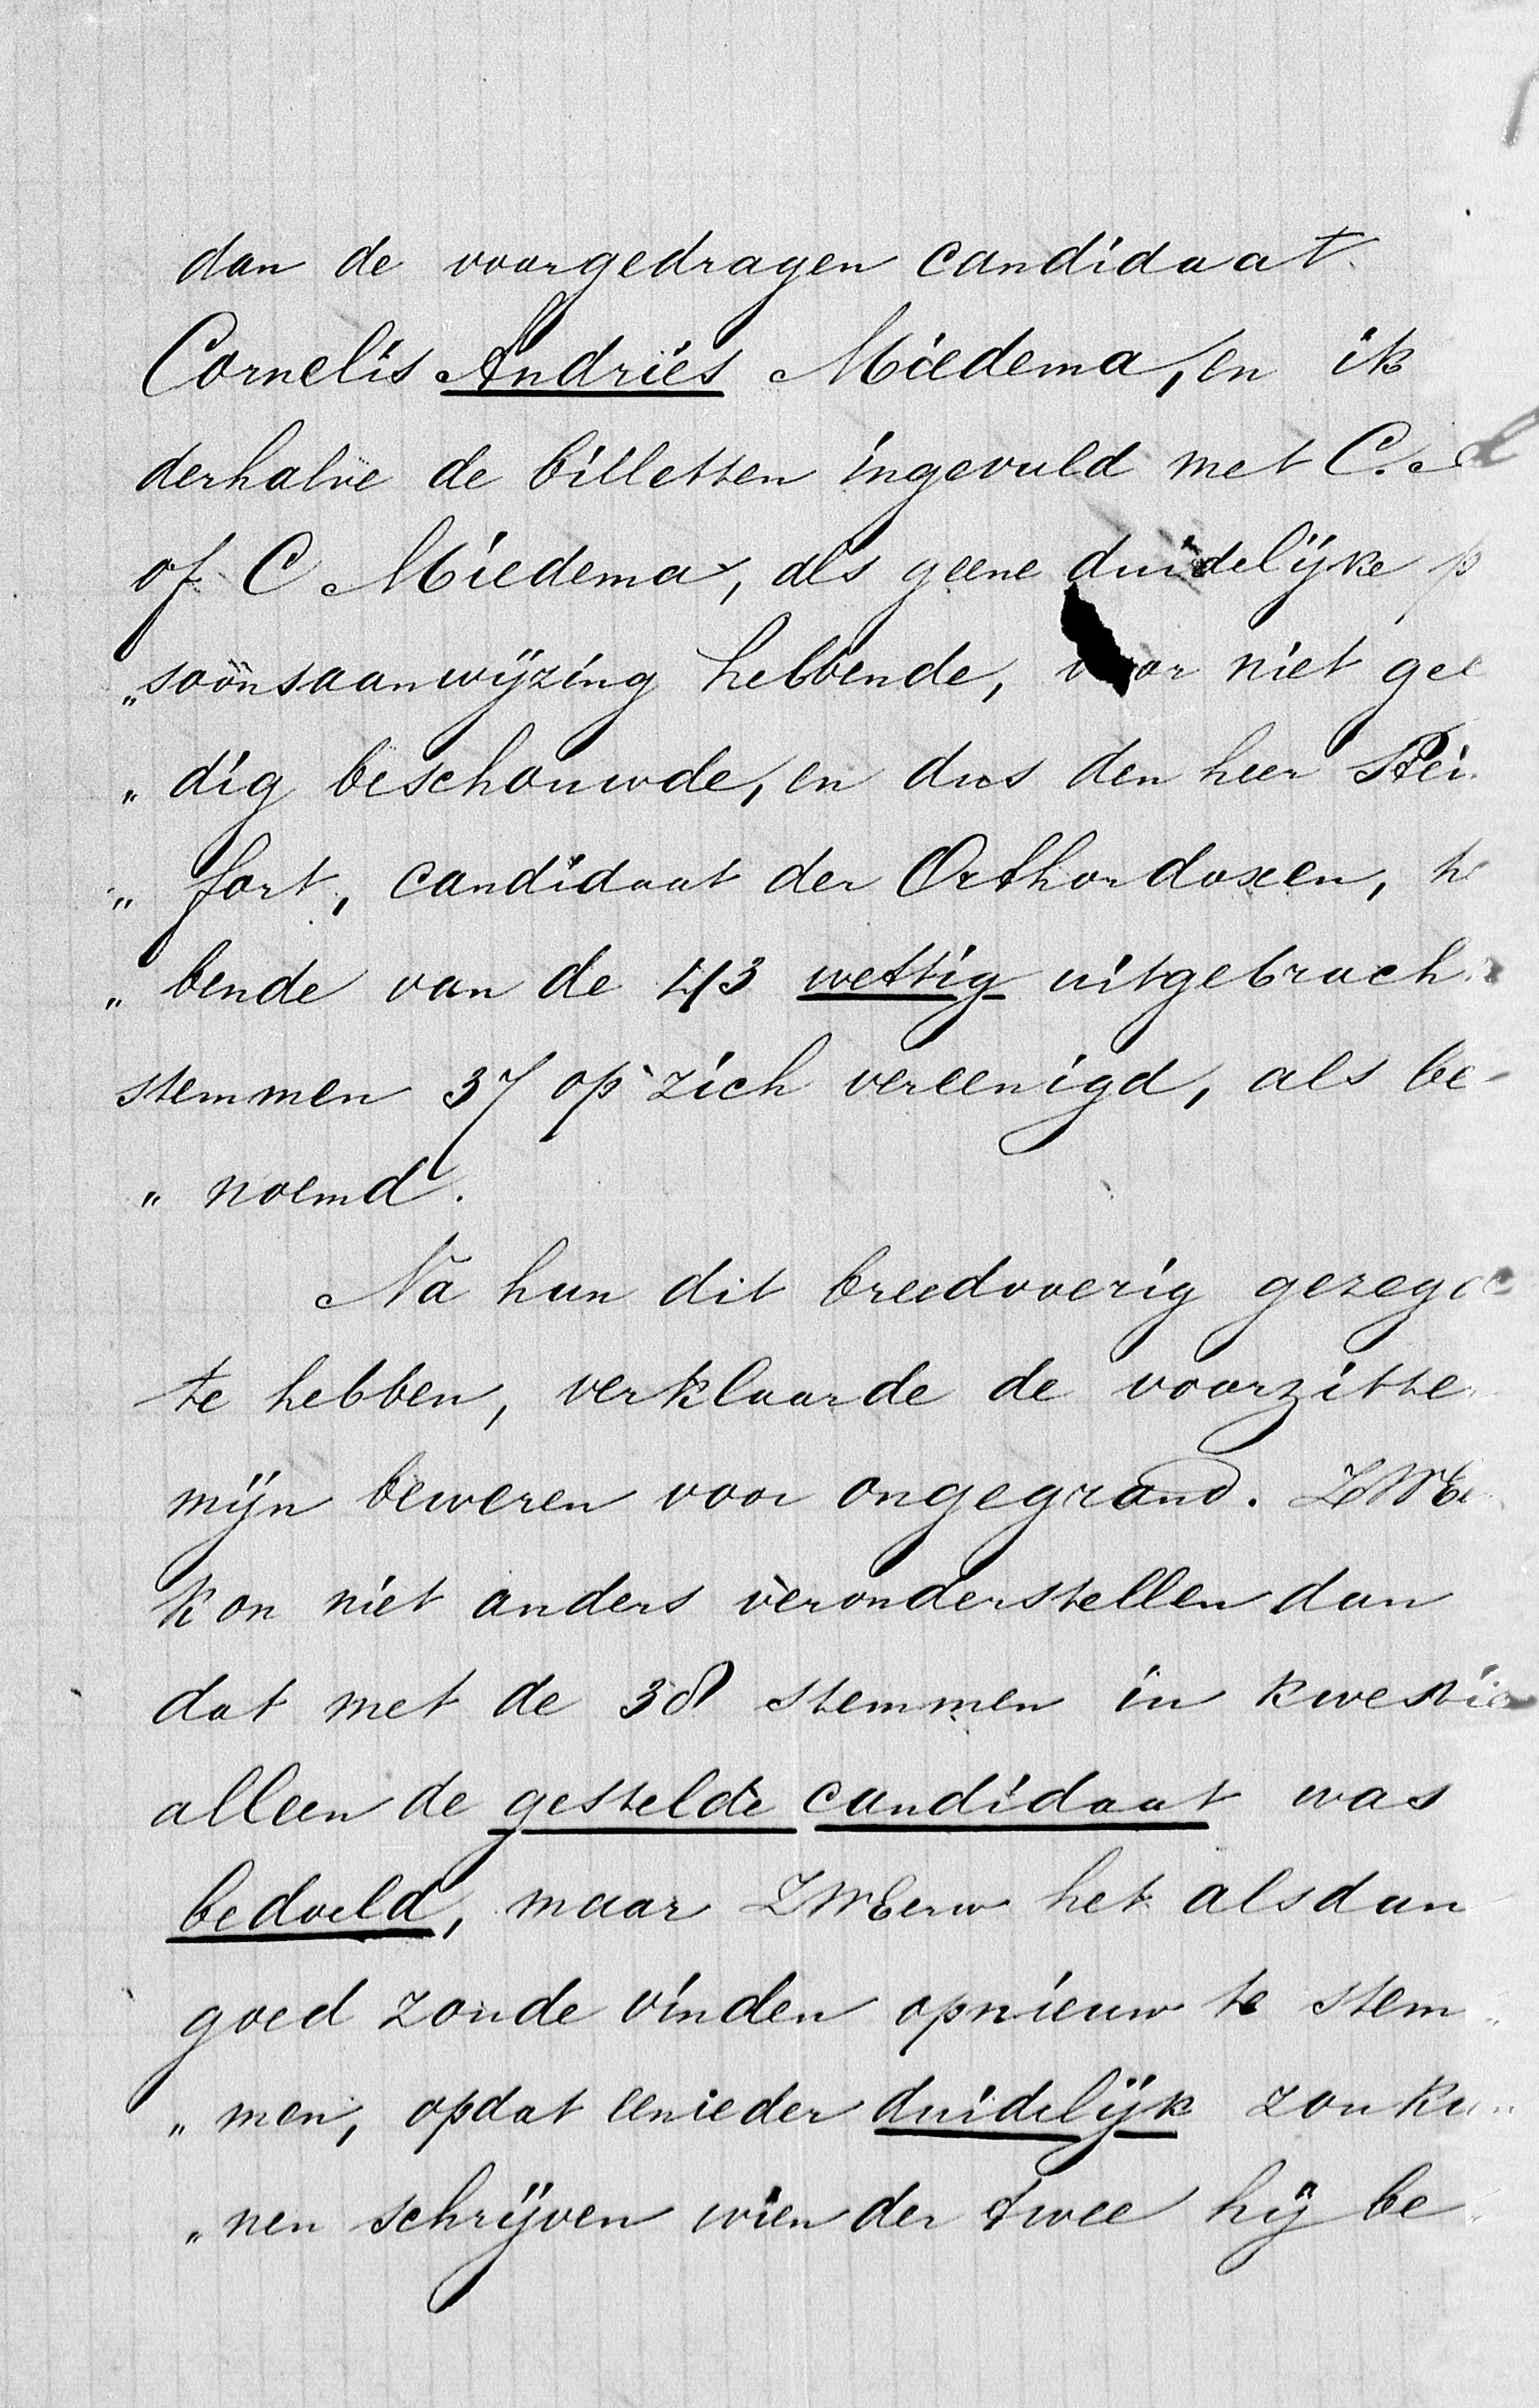 dan de voorgedragen candidaat
Cornelis Andries Miedema, en ik
derhalve de billetten ingevuld met C.
of C Miedema, als geene duidelijke p
„soönsaanwijzing hebbende, voor niet gel
„ dig beschouwde, en dus den heer Stei
„ fort, candidaat der Orthordoxen, he
„ bende van de 43 wettig uitgebrach
stemmen 37 op zich vereenigd, als be-
„ noemd.
Na hun dit breedvoerig gezegd
te hebben, verklaarde de voorzitter
mijn beweren voor ongegrond. ZWEe
kon niet anders veronderstellen dan
dat met de 38 stemmen in kwestie
alleen de gestelde candidaat was
bedoeld, maar ZWEerw het alsdan
goed zoude vinden opnieuw te stem„
„ men, opdat eenieder duidelijk zou kun„
„ nen schrijven wien der twee hij be„